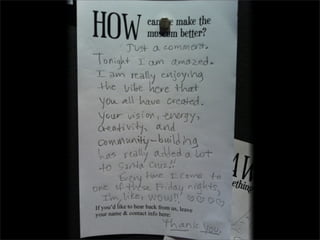 HOW can we make the
museum better?
Just a comment.
Tonight I am amazed.
I am really enjoying
the vibe here that
you all have created.
Your vision, energy,
creativity, and
community-building
has really added a lot
to Santa Cruz!!
Every time I come to
one of these Friday nights,
I'm like, WOW!!
If you'd like to hear back from us, leave
your name & contact info here:
Thank you.